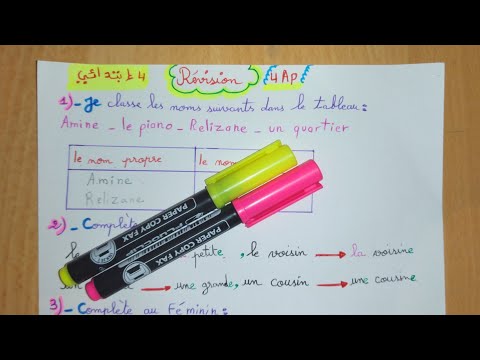 4 إبتدائي Révision 4 AP
1)_ Je classe les noms suivants dans le tableau:
Amine _ le piano _ Relizane _ un quartier
le nom propre le nom
Amine
Relizane
2)_ Complète
petite, le voisin → la voisine
un → une grande, un cousin → une cousine
3)_ Complète au Féminin:
PAPER COPY FAX
PAPER COPY FAX